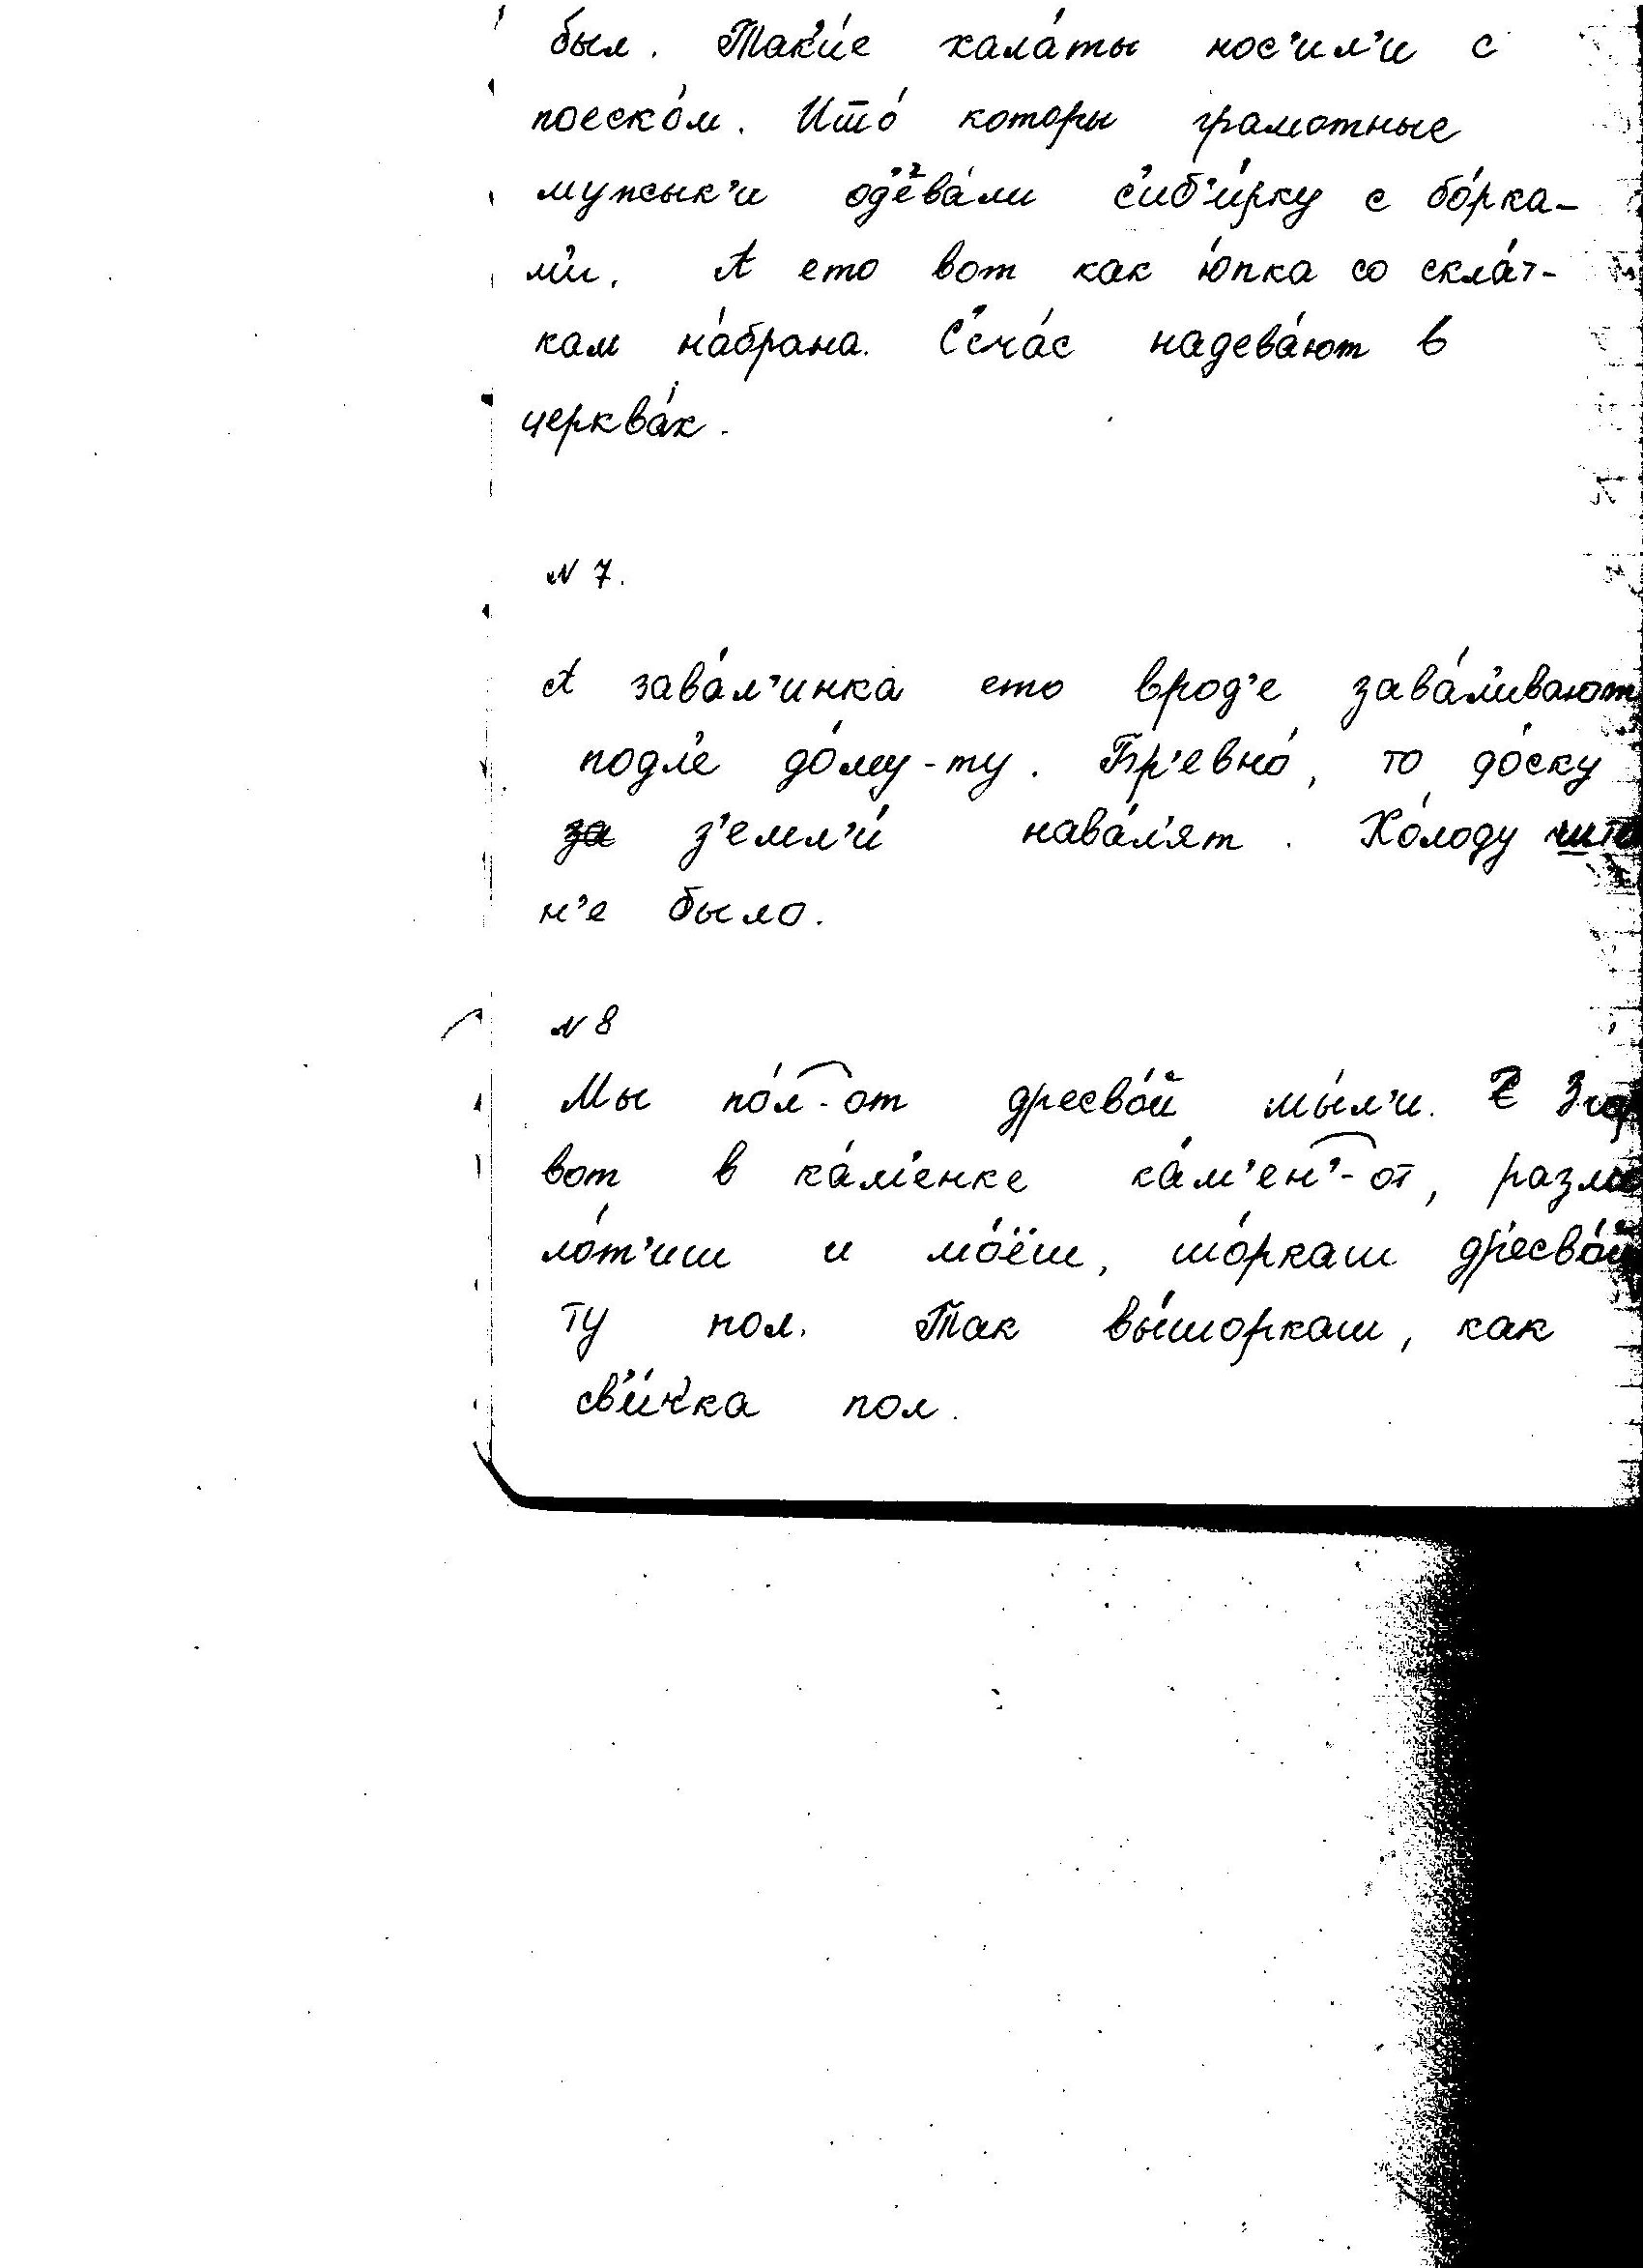 был. Так'и́е хала́ты нос'ил'и с
поеско́м. Што́ которы грамотные
мужык'и од'ева́ли с'иб'и́рку с бо́рка-
м'и. А ето вот как ю́пка со скла́т-
кам на́брана. С'еча́с надева́ют в
церква́х.
N 7.
А зава́л'инка ето врод'е зава́л'ивают
подл'е до́му-ту. Бр'евно́, то до́ску
з'емл'и́ нава́л'ят. Хо́лоду што
н'е было.
N 8
Мы по́л-от дресво́й мы́л'и.
вот в ка́м'енке ка́м'ен'-от, размо
ло́т'иш и мо́ёш, шо́ркаш др'есво́й
ту пол. Так вы́шоркаш, как
св'и́чка пол.